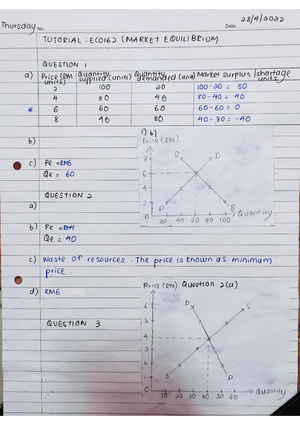 Thursday No.: Date: 28/4/2022
TUTORIAL: ECO162 (MARKET EQUILIBRIUM)
QUESTION 1
a) Price (RM Quantity Quantity Market surplus/shortage
units) supplied (units) demanded (unit) units
2 100 20 100-20 = 80
4 80 40 80-40 = 40
* 6 60 60 60-60 = 0
8 40 80 40-80 = -40
b)
1) b)
Price (RM)
8
6
4
2
0
D S
D
20 40 60 80 100 Quantity
c) Pe = RM6
Qe = 60
QUESTION 2
a)
b) Pe = RM4
Qe = 40
c) Waste of resources. The price is known as minimum
price.
d) RM6
Price (RM) Question 2 (a)
6
5
4
3
2
1
0
D S
S D
10 20 30 40 50 60 Quantity
QUESTION 3